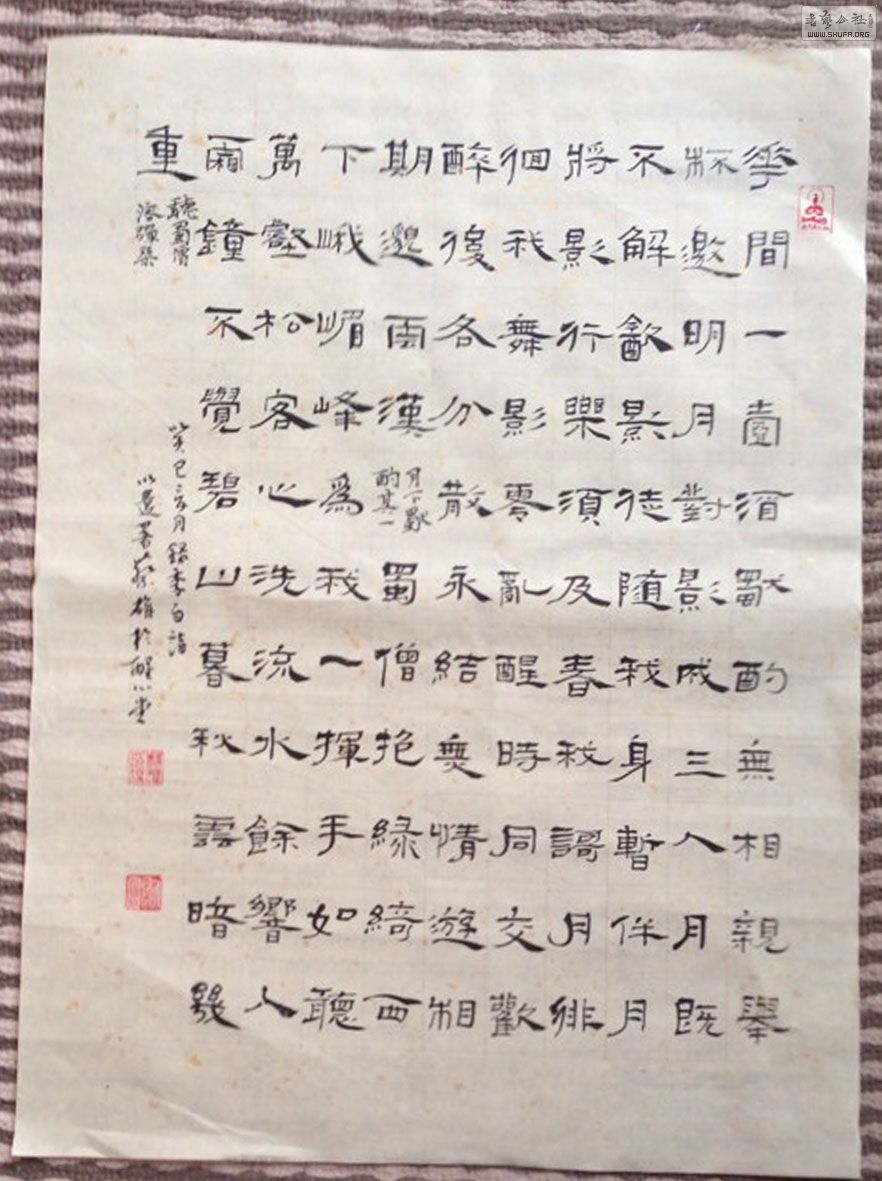 華間一壺酒獨酌無相親舉
杯邀明月對影成三人月既
不解飲影徒隨我身暫伴月
將影行樂須及春我謌月徘
徊我舞影零亂醒時同交歡
醉後各分散永結無情遊相
期邈雨漢
月下獨
酌其一
蜀僧抱綠綺西
下峨嵋峰為我一揮手如聽
萬壑松客心洗流水餘響入
霜鐘不覺碧山暮秋雲暗幾
重
聽蜀僧
濬彈琴
癸巳三月錄李白詩
於醒心堂
WWW.SHUFA.ORG